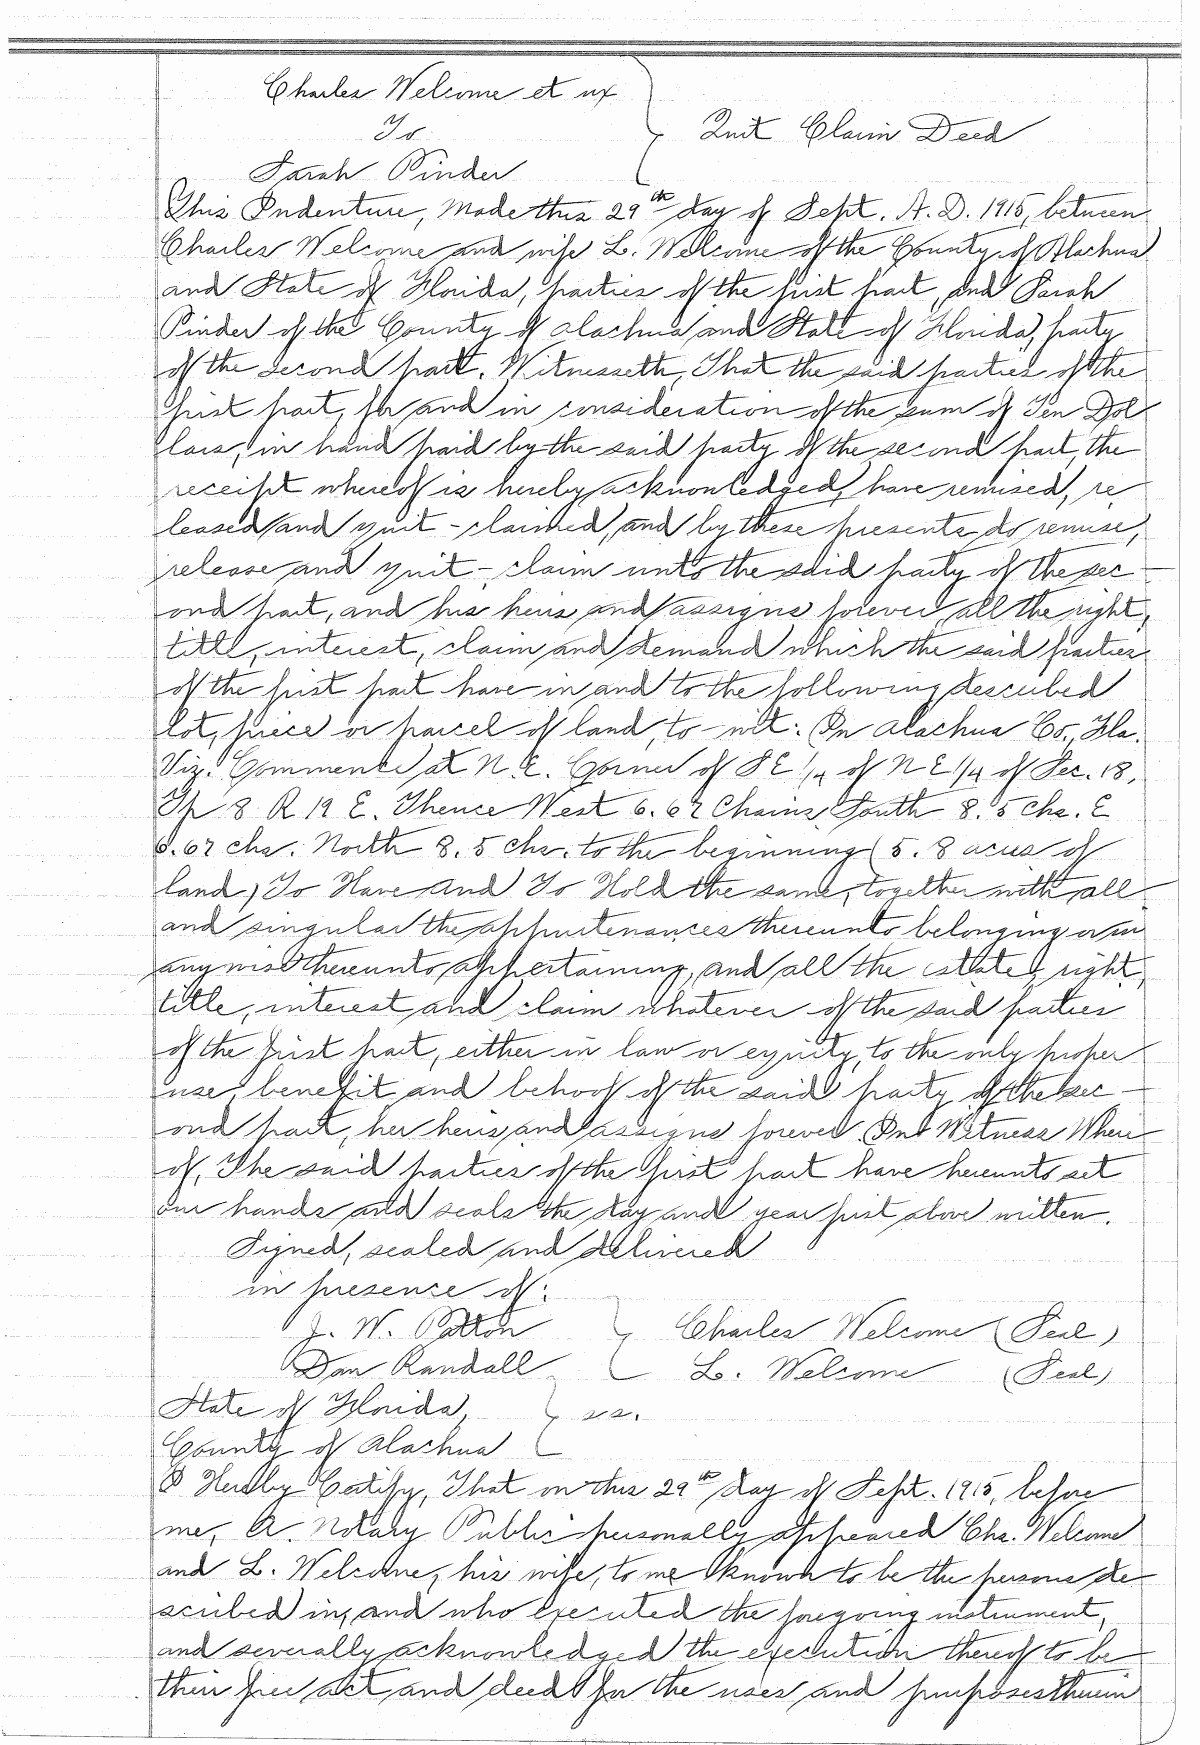 Charles Welcome et ux
To
Quit Claim Deed
Sarah Pinder
This Indenture, Made this 29th day of Sept. A. D. 1915, between
Charles Welcome and wife L. Welcome of the County of Alachua
and State of Florida, parties of the first part, and Sarah
Pinder of the County of Alachua and State of Florida, party
of the second part. Witnesseth, That the said parties of the
first part, for and in consideration of the sum of Ten Dol
lars, in hand paid by the said party of the second part, the
receipt whereof is hereby acknowledged, have remised, re
leased and quit-claimed, and by these presents do remise,
release and quit-claim unto the said party of the sec
ond part, and his heirs and assigns forever, all the right,
title, interest, claim and demand which the said parties
of the first part have in and to the following described
lot, piece or parcel of land, to-wit: In Alachua Co., Fla.
Viz. Commence at N.E. Corner of SE 1/4 of NE 1/4 of Sec. 18,
Tp 8 R 19 E. Thence West 6.67 Chains, South 8.5 chs. E
6.67 chs. North 8.5 chs. to the beginning (5.8 acres of
land) To Have And To Hold the same, together with all
and singular the appurtenances thereunto belonging or in
anywise thereunto appertaining, and all the estate, right,
title, interest and claim whatever of the said parties
of the first part, either in law or equity, to the only proper
use, benefit and behoof of the said party of the sec
ond part, her heirs and assigns forever. In Witness Where
of, The said parties of the first part have hereunto set
our hands and seals the day and year first above written.
Signed, sealed and delivered
in presence of:
J. W. Patton Charles Welcome (Seal)
Dan Randall L. Welcome (Seal)
State of Florida, ss.
County of Alachua
I Hereby Certify, That on this 29th day of Sept. 1915, before
me, A Notary Public personally appeared Chs. Welcome
and L. Welcome, his wife, to me known to be the persons de
scribed in, and who executed the foregoing instrument,
and severally acknowledged the execution thereof to be
their free act and deed for the uses and purposes therein